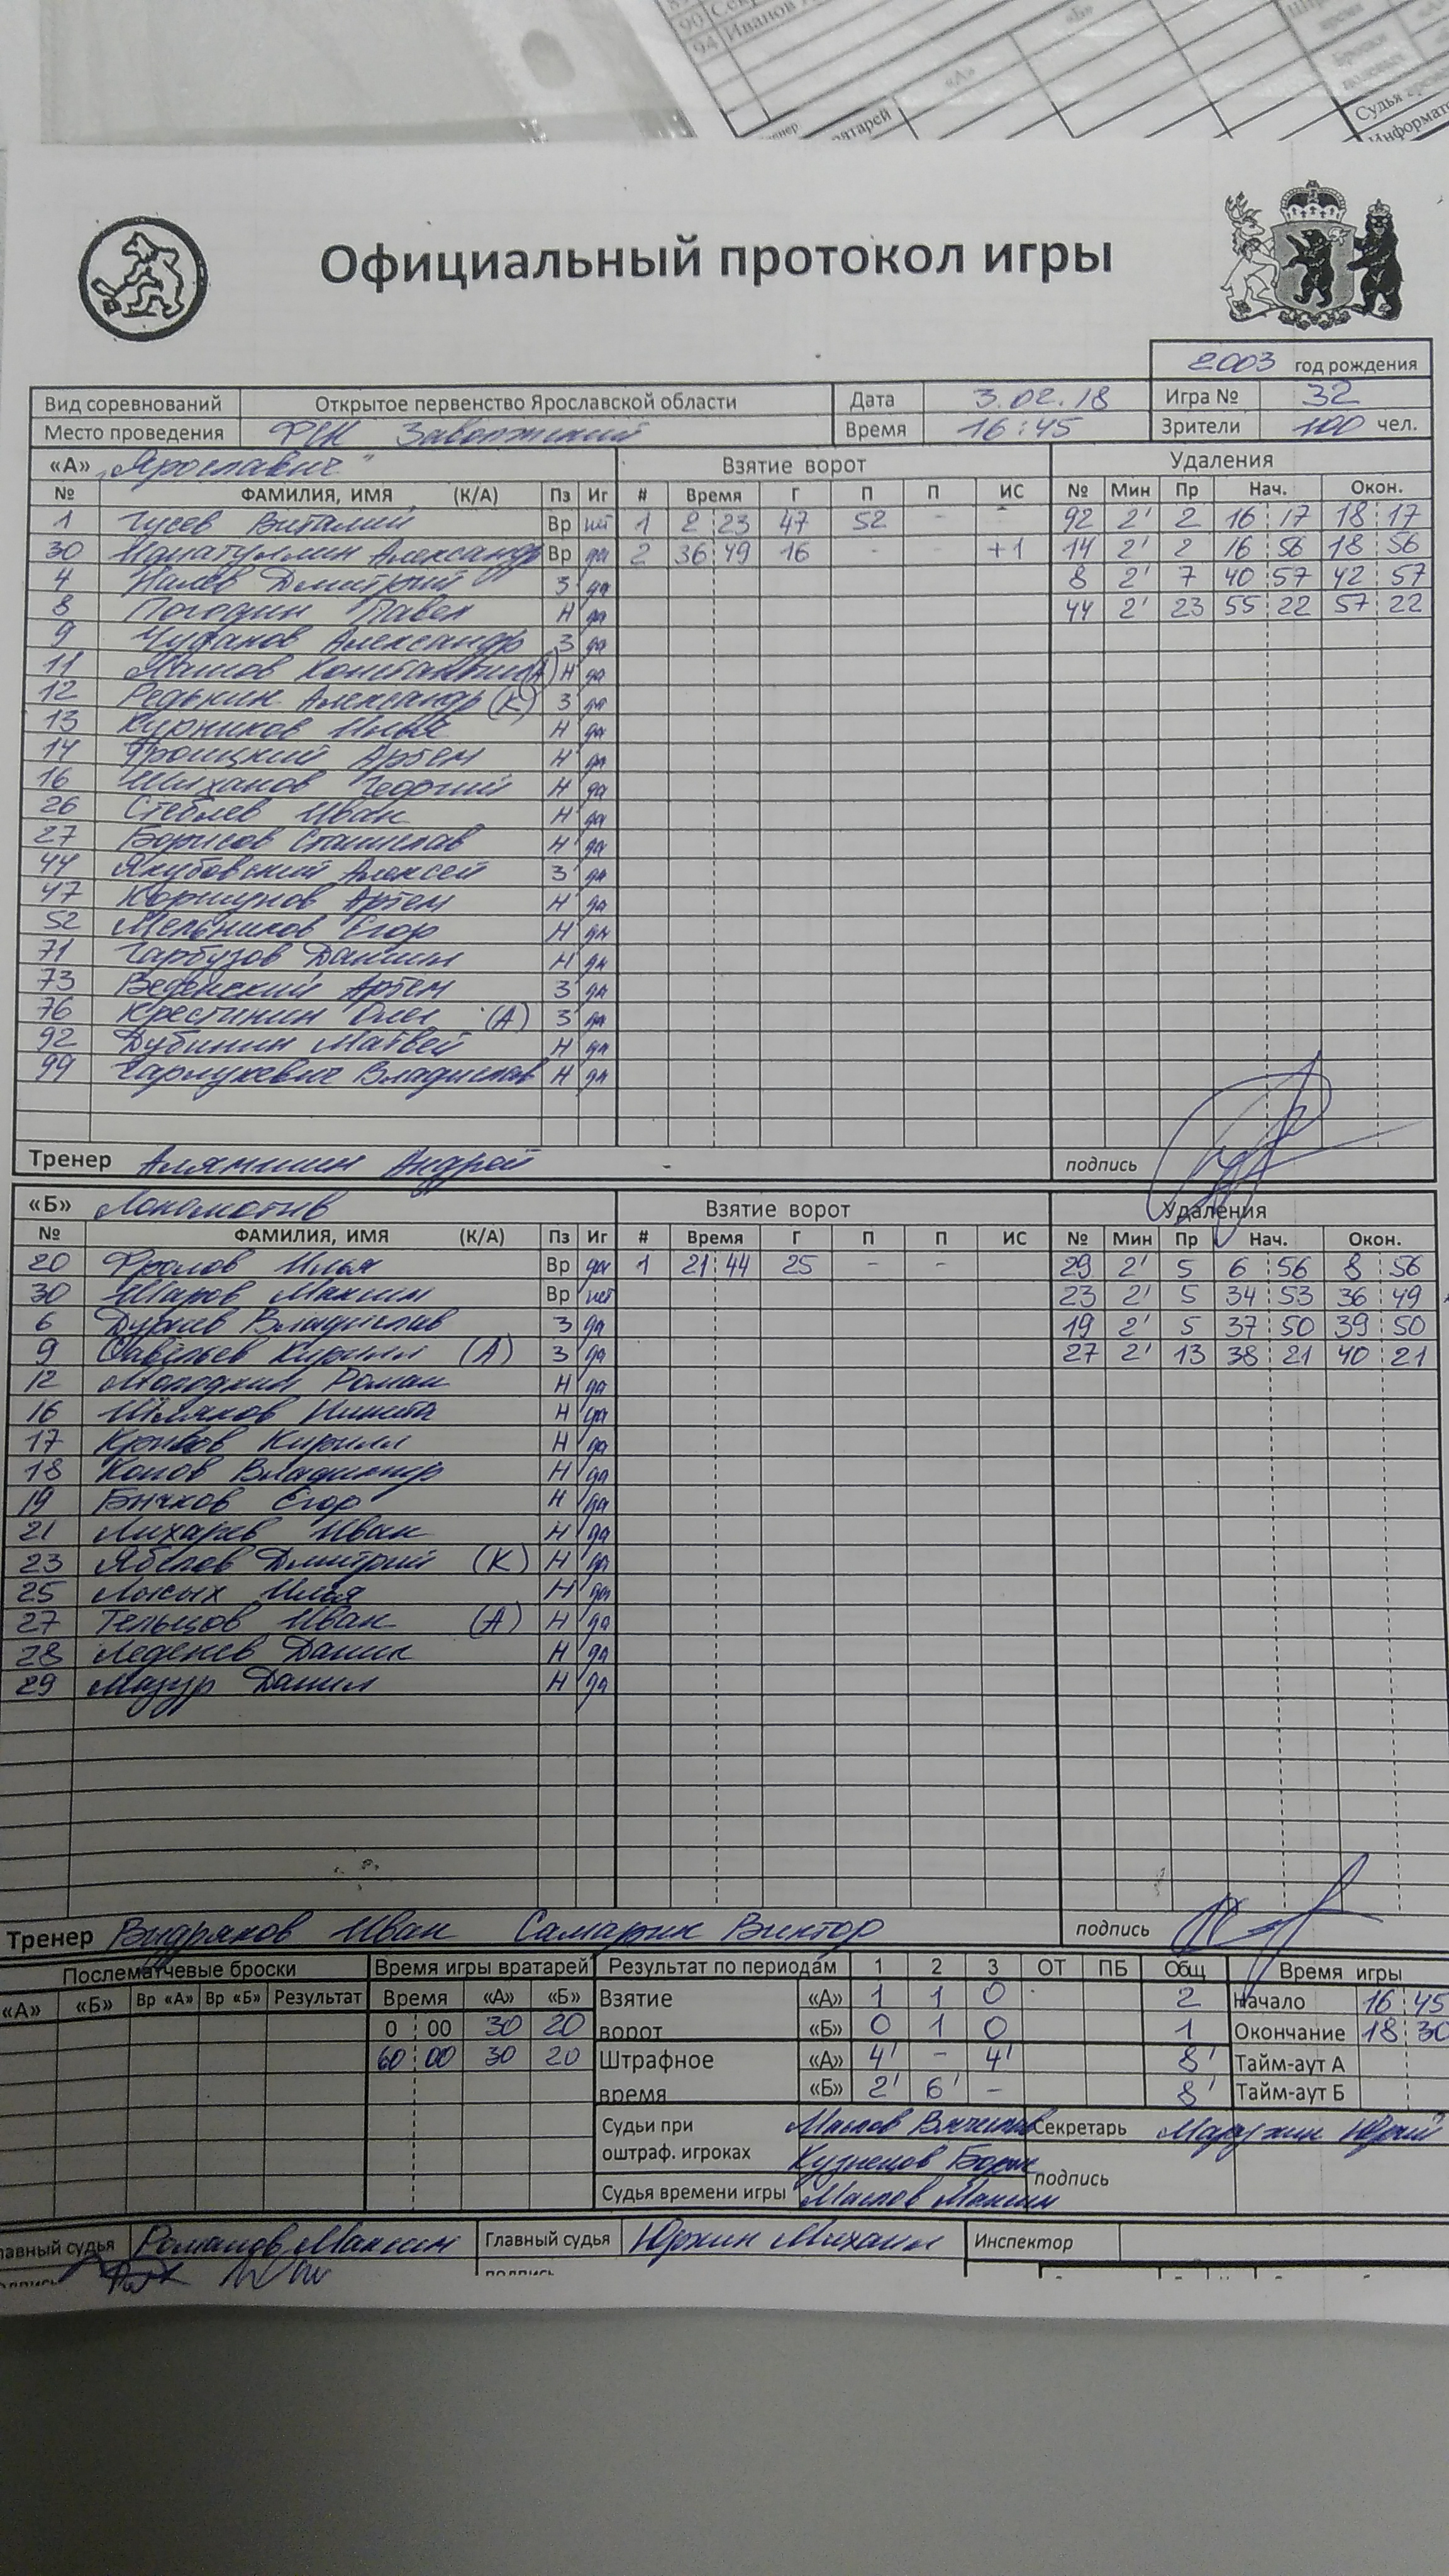 90 Сек
94 Иванов
«А»
«Б»
Официальный протокол игры
2003 год рождения
Вид соревнований Открытое первенство Ярославской области Дата 3.02.18 Игра № 32
Место проведения ФСК Заволжский Время 16:45 Зрители 100 чел.
«А» „Ярославич" Взятие ворот Удаления
№ ФАМИЛИЯ, ИМЯ (К/А) Пз Иг # Время Г П П ИС № Мин Пр Нач. Окон.
1 Гусев Виталий Вр нет 1 2 23 47 52 - - 92 2' 2 16 17 18 17
30 Александр Вр да 2 36 49 16 - - +1 14 2' 2 16 56 18 56
4 Дмитрий З да 8 2' 7 40 57 42 57
8 Погодин Павел Н да 44 2' 23 55 22 57 22
9 Чудаков Александр З да
11 Константин (А) Н да
12 Редькин Александр (К) З да
13 Курников Илья Н да
14 Троицкий Артем Н да
16 Шиханов Георгий Н да
26 Стеблев Иван Н да
27 Борисов Станислав Н да
44 Якубовский Алексей З да
47 Коршунов Артем Н да
52 Мельников Егор Н да
71 Гарбузов Даниил Н да
73 Веденский Артем З да
76 Крестинин Олег (А) З да
92 Дубинин Матвей Н да
99 Гарлукевич Владислав Н да
Тренер Андрей подпись
«Б» Локомотив Взятие ворот Удаления
№ ФАМИЛИЯ, ИМЯ (К/А) Пз Иг # Время Г П П ИС № Мин Пр Нач. Окон.
20 Фролов Илья Вр да 1 21 44 25 - - 29 2' 5 6 56 8 56
30 Шаров Максим Вр нет 23 2' 5 34 53 36 49
6 Владислав З да 19 2' 5 37 50 39 50
9 Савельев Кирилл (А) З да 27 2' 13 38 21 40 21
12 Молодкин Роман Н да
16 Шляков Никита Н да
17 Кривов Кирилл Н да
18 Конов Владимир Н да
19 Бычков Егор Н да
21 Лихарев Иван Н да
23 Яблоков Дмитрий (К) Н да
25 Илья Н да
27 Тельцов Иван (А) Н да
28 Леденев Даник Н да
29 Мазур Данил Н да
Тренер Выдряков Иван Самарин Виктор подпись
Послематчевые броски Время игры вратарей Результат по периодам 1 2 3 ОТ ПБ Общ Время игры
«А» «Б» Вр «А» Вр «Б» Результат Время «А» «Б» Взятие «А» 1 1 0 2 Начало 16 45
0 00 30 20 ворот «Б» 0 1 0 1 Окончание 18 30
60 00 30 20 Штрафное «А» 4' - 4' 8' Тайм-аут А
время «Б» 2' 6' - 8' Тайм-аут Б
Судьи при Маслов Вячеслав Секретарь Юрий
оштраф. игроках Кузнецов Борис подпись
Судья времени игры Маслов Максим
лавный судья Романов Максим Главный судья Юркин Михаил Инспектор